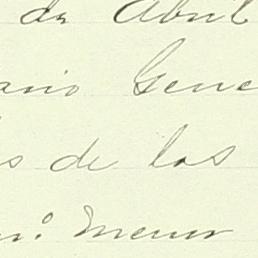 de Abril
ario Gene
s de los
n.º Menor